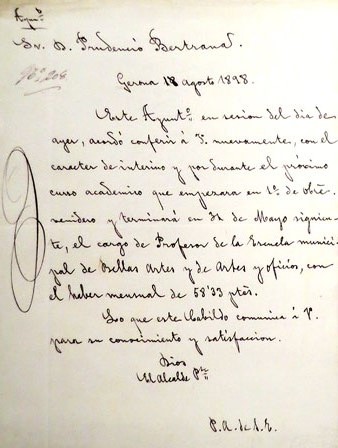 Ayunt.º
Sr. D. Prudencio Bertrana.
Nº 208
Gerona 18 agosto 1898.
Este Ayunt.º en sesion del dia de
ayer, acordó conferir á V. nuevamente, con el
caracter de interino y por durante el próximo
curso academico que empezara en 1º de obre.
venidero y terminará en 31 de Mayo siguien-
te, el cargo de Profesor de la Escuela munici-
pal de Bellas Artes y de Artes y oficios, con
el haber mensual de 58'33 ptas.
Lo que este Cabildo comunica á V.
para su conocimiento y satisfaccion.
Dios
El Alcalde Pte
P. A. de S. E.